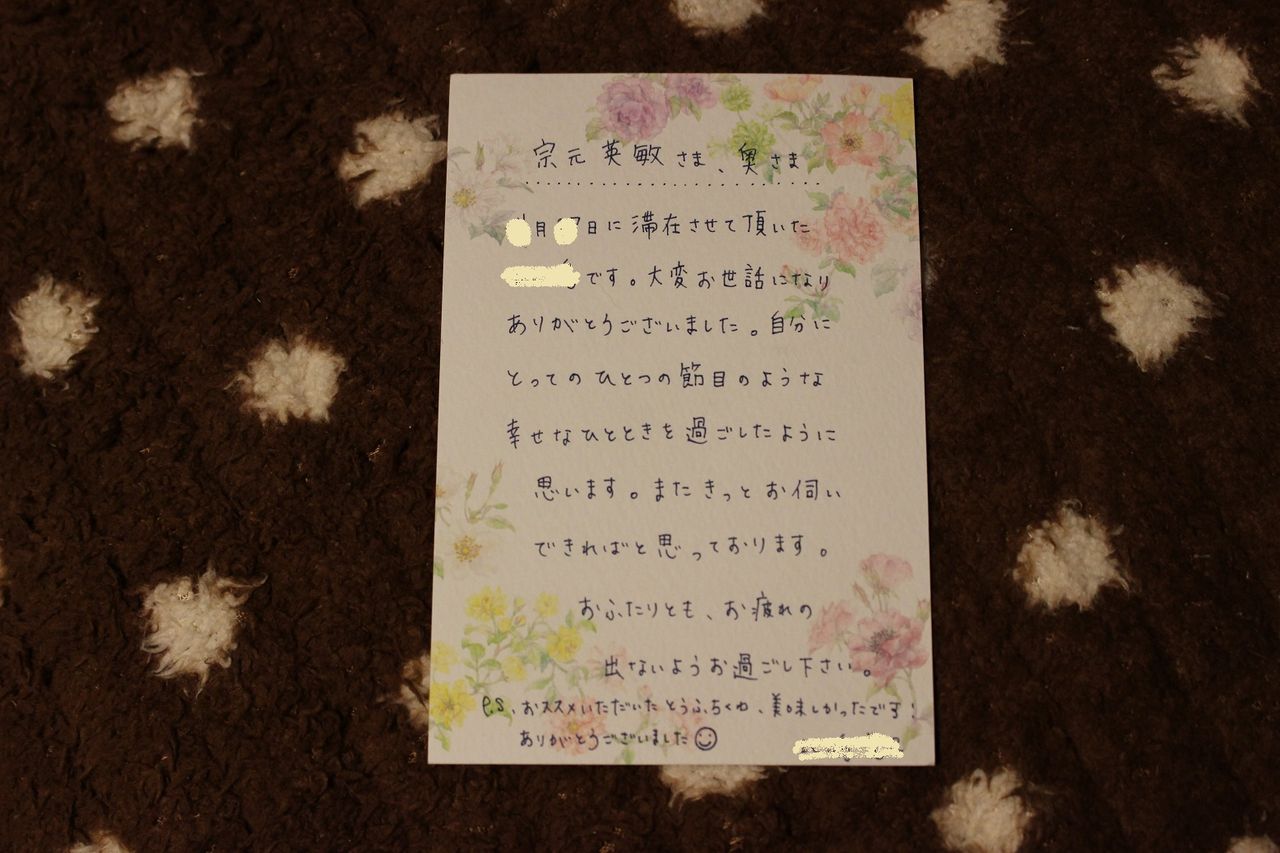 宗元英敏さま、奥さま
月 日に滞在させて頂いた
です。大変お世話になり
ありがとうございました。自分に
とってのひとつの節目のような
幸せなひとときを過ごしたように
思います。またきっとお伺い
できればと思っております。
おふたりとも、お疲れの
出ないようお過ごし下さい。
P.S、おススメいただいたとうふちくわ、美味しかったです!
ありがとうございました